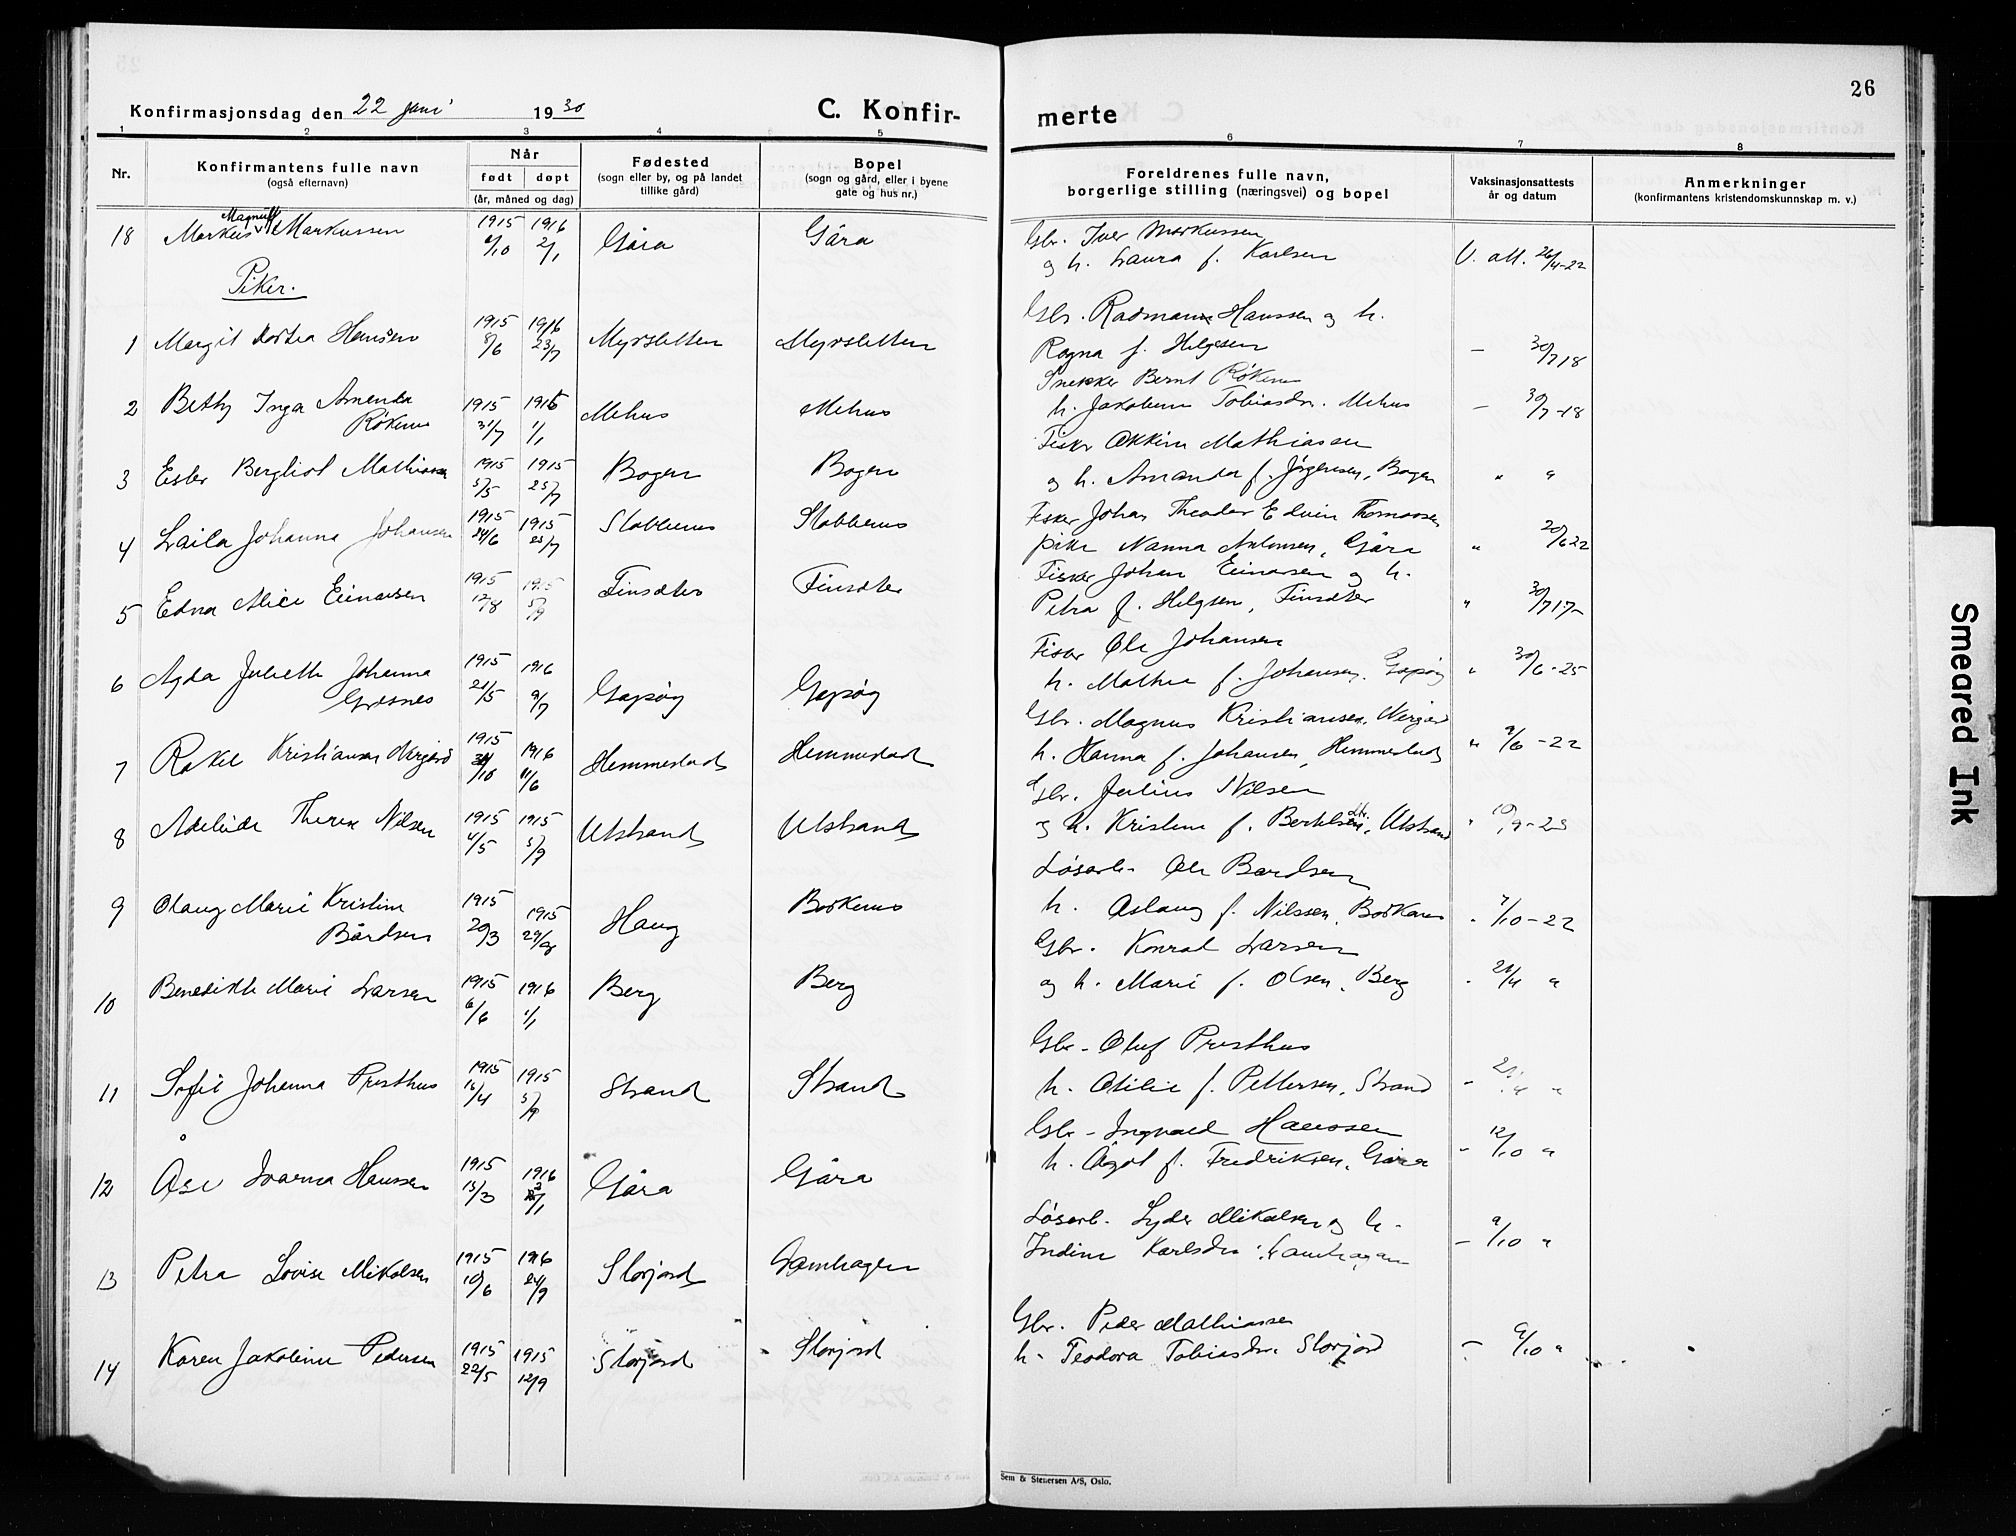 26
Konfirmasjonsdag den 22 juni 1930 C. Konfir- merte
1 2 3 4 5 6 7 8
Nr. Konfirmantens fulle navn (også efternavn)
Når
født døpt
(år, måned og dag)
Fødested
(sogn eller by, og på landet
tillike gård)
Bopel
(sogn og gård, eller i byene
gate og hus nr.)
Foreldrenes fulle navn,
borgerlige stilling (næringsvei) og bopel
Vaksinasjonsattests
år og datum
Anmerkninger
(konfirmantens kristendomskunnskap m. v.)
18 Markus Magnus Markussen 1915 6/10 1916 2/1 Gåra Gåra Gbr. Iver Markussen
og h. Laura f. Karlsen V. att. 26/4-22
Piker.
1 Margit Hansen 1915 8/6 1916 23/7 Myrsletten Myrsletten Gbr. Radmann Hanssen og h.
Ragna f. Helgesen - 30/7 18
2 Betty Inga Amenda
Røkenes 1915 31/7 1916 1/1 Mehus Mehus Snekker Bernt Røkenes
h. Jakobine Tobiasdr. Mehus - 30/7-18
3 Ester Bergliot Mathiassen 1915 5/5 1915 25/7 Bogen Bogen Fisker Okkim Mathiasen
og h. Amanda f. Jörgensen, Bogen " "
4 Laila Johanna Johansen 1915 24/6 1915 25/7 Stobbenes Stobbenes Fisker Johan Theodor Edvin Thomassen
pike Nanna Antonsen, Gåra " 20/6 22
5 Edna Alice Einarsen 1915 12/8 1915 5/9 Finsæter Finsæter Fisker Johan Einarsen og h.
Petra f. Helgsen, Finsæter " 30/7 17-
6 Agda Juliette Johanna
Grøsnes 1915 21/5 1916 9/7 Gapøy Gapøy Fisker Ole Johansen
h. Mathea f. Johansen, Gapøy " 30/6-25
7 Rakel Kristiansen Nergård 1915 1916 11/6 Hemmestad Hemmestad Gbr. Magnus Kristiansen, Nergård
h. Hanna f. Johansen, Hemmestad " 9/6-22
8 Adeleide Therese Nilsen 1915 4/5 1915 5/9 Utstrand Utstrand Gbr. Julius Nilsen
og h. Kristine f. Bertelsdtr., Utstrand " 10/9-23
9 Olaug Marie Kristine
Bårdsen 1915 20/3 1915 29/8 Haug Borkenes Løsarb. Ole Bardsen
h. Aslaug f. Nilssen, Borkenes " 7/10-22
10 Benedikte Marie Larsen 1915 6/6 1916 1/1 Berg Berg Gbr. Konrad Larsen
og h. Marie f. Olsen, Berg " 21/4 "
11 Sofie Johanna Presthus 1915 15/4 1915 5/9 Strand Strand Gbr - Oluf Presthus
h. Otilie f. Pettersen, Strand - "
12 Åse Ivarna Hanssen 1915 15/3 1916 Gåra Gåra Gbr - Ingvald Hanssen
h. Ågot f. Fredriksen, Gåra - 12/10 "
13 Petra Lovise Mikalsen 1915 10/6 1916 24/9 Storjord Lamhagen Løsarb. Lyder Mikalsen og h.
Indine Karlsdtr. Lamhagen - 9/10 "
14 Karen Jakobine Pedersen 1915 22/5 1915 12/9 Storjord Storjord Gbr. Peder Mathiassen
h. Teodora Tobiasdr. Storjord - 9/10 "
Sem & Stenersen A/S, Oslo.
Smeared Ink